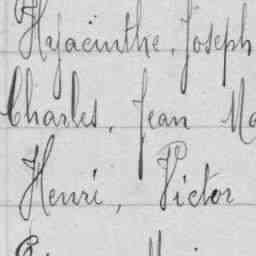 Hyacinthe, Joseph
Charles, Jean
Henri, Victor